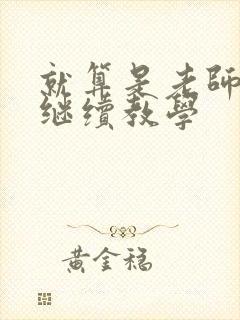 就算是老師
继续教學
黃金稳